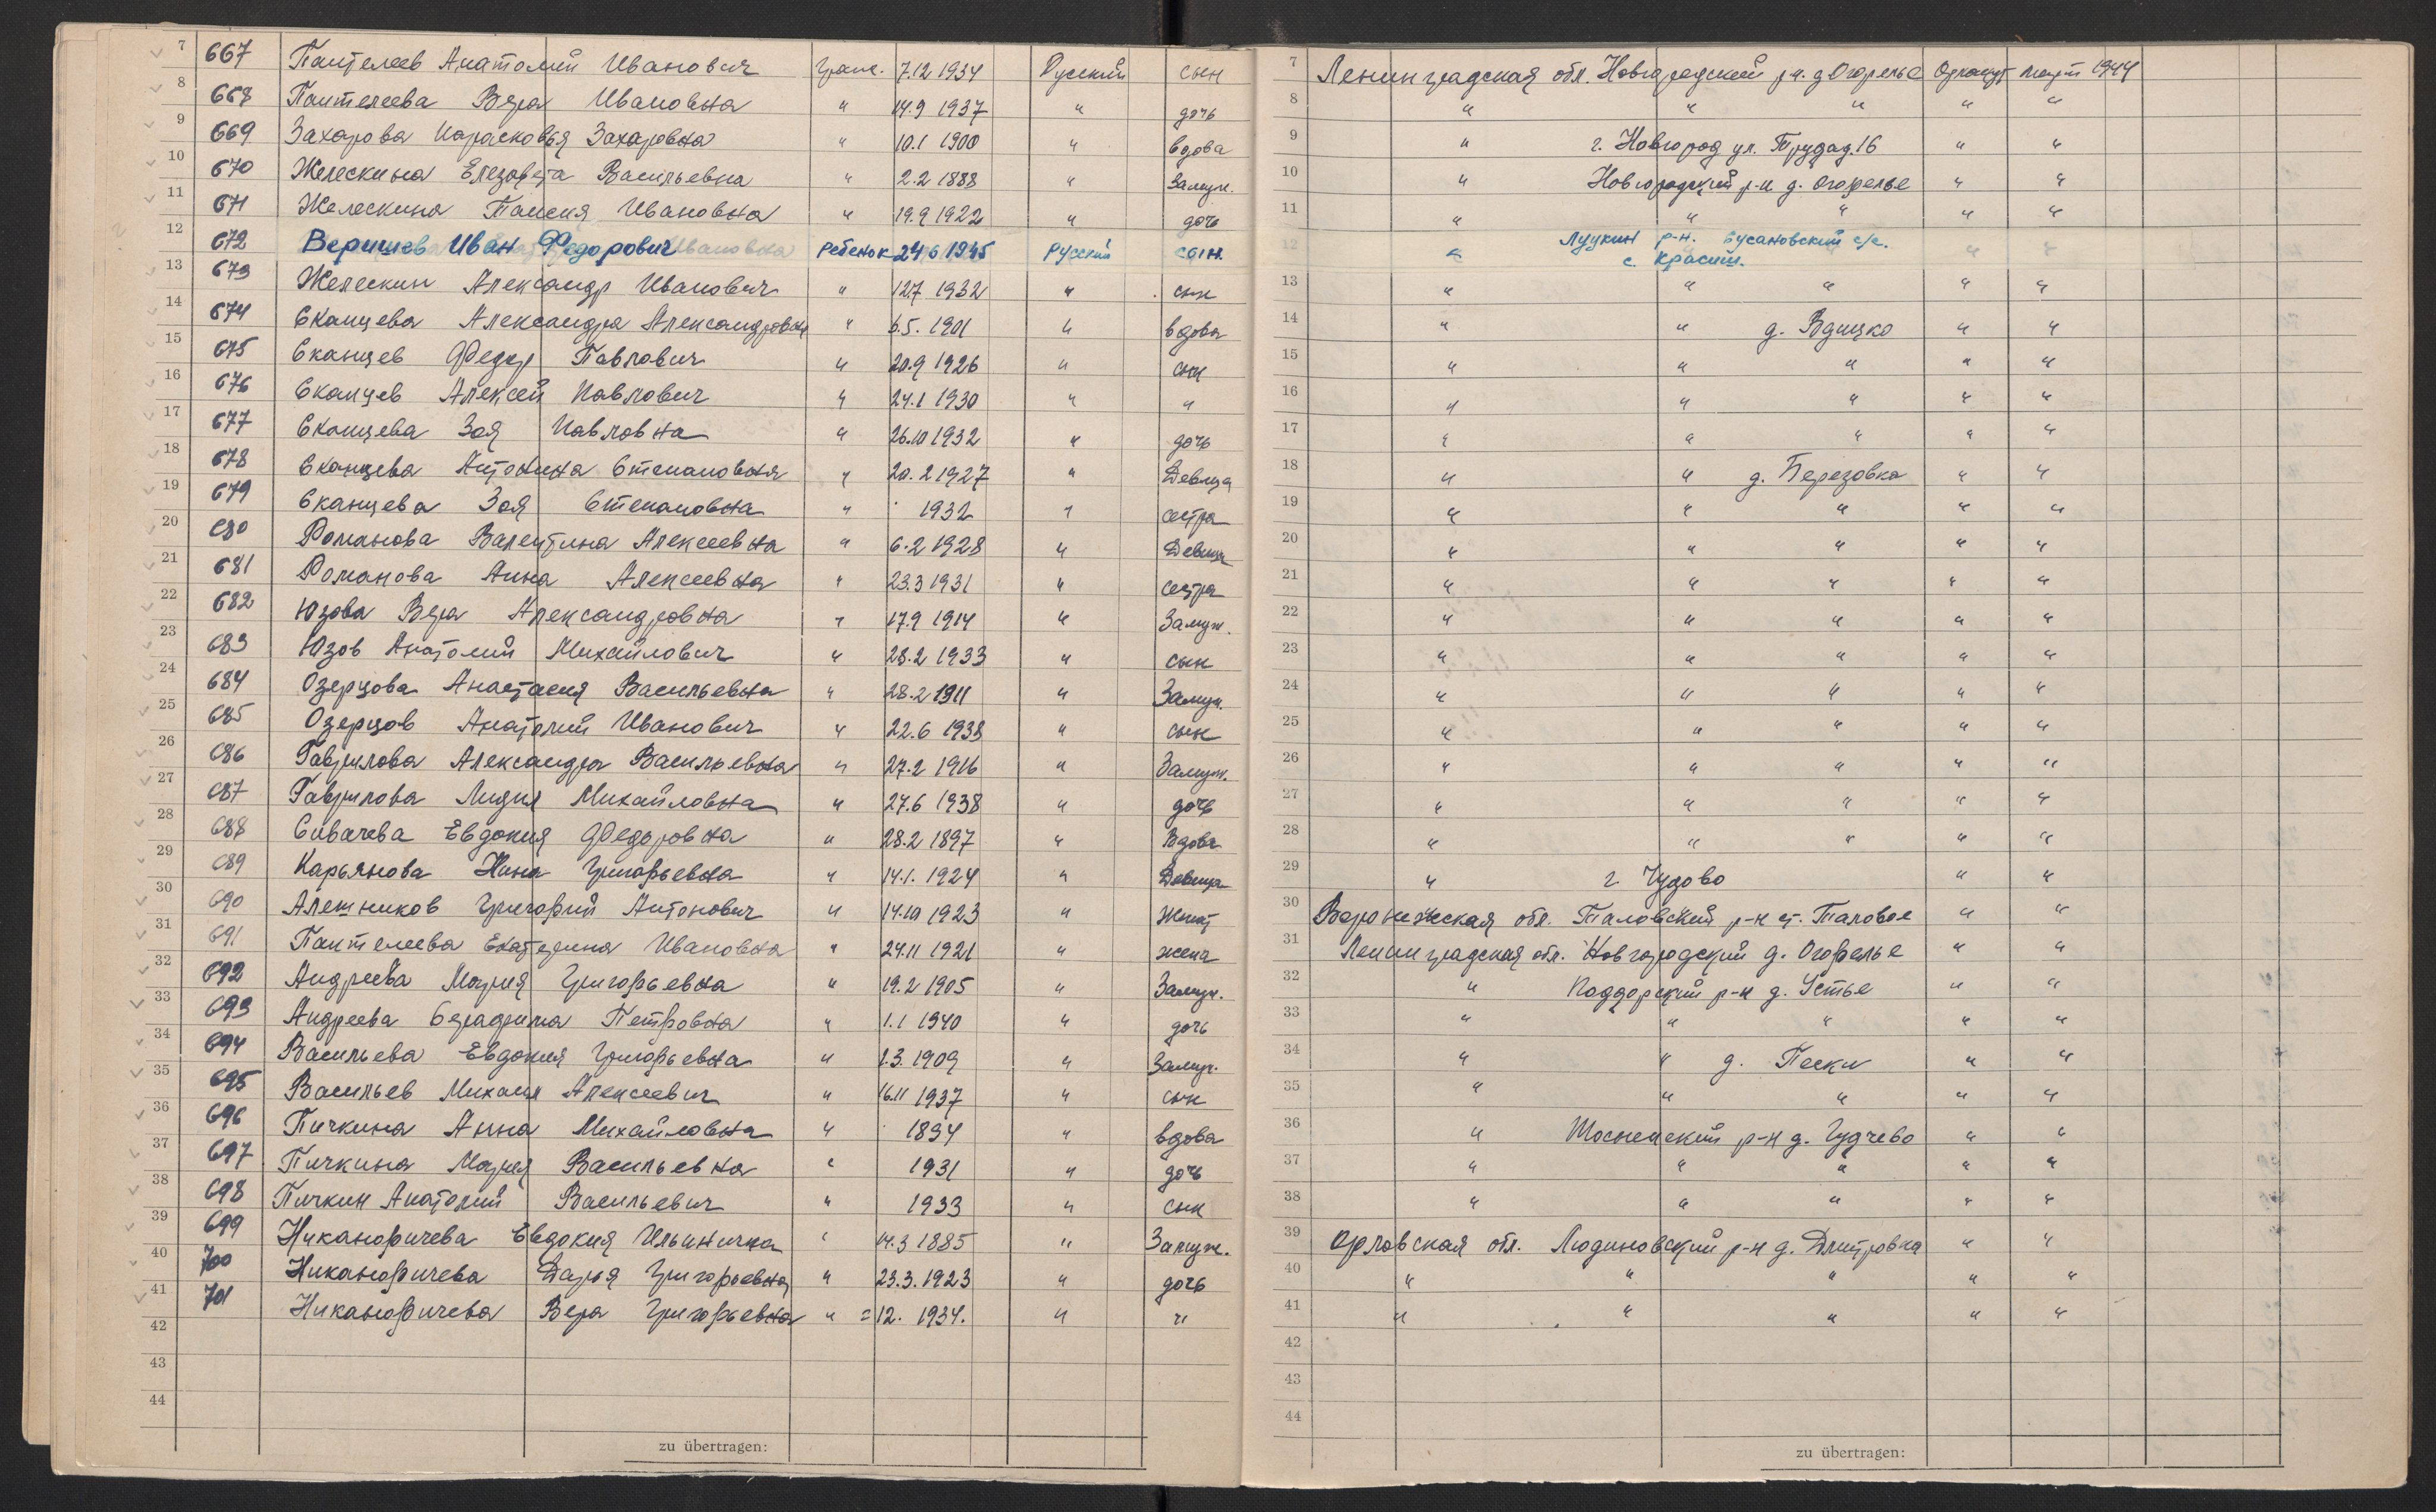 7 667 Пантелеев Анатолий Иванович Граж. 7.12 1934 Русский сын 7 Ленинградская обл. Новгородский р-н. д Огорелье март 1944
8 668 Пантелеева Вера Ивановна " 14.9 1937 " дочь 8 " " " " "
9 669 Захарова Парасковья Захаровна " 10.1 1900 " вдова 9 " г. Новгород ул. Труда д.16 " "
10 670 Желескина Елезавета Васильевна " 2.2 1888 " Замуж. 10 " Новгородский р-н д. Огорелье " "
11 671 Желескина Таисия Ивановна " 19.9 1922 " дочь 11 " " " " "
12 672 Вершиев Иван Федорович Ребенок 24 6 1945 Русский сын. 12 " р-н. Бусановский с/с. " "
с. Красиш.
13 673 Желескин Александр Иванович " 12.7 1932 " сын 13 " " " " "
14 674 Сканцева Александра Александровна " 6.5. 1901 " вдова 14 " " д. Вдицко " "
15 675 Сканцев Федор Павлович " 20.9 1926 " сын 15 " " " " "
16 676 Сканцев Алексей Павлович " 24.1 1930 " " 16 " " " " "
17 677 Сканцева Зоя Павловна " 26.10 1932 " дочь 17 " " " " "
18 678 Сканцева Антонина Степановна " 20.2 1927 " Девица 18 " " д. Березовка " "
19 679 Сканцева Зоя Степановна " 1932 " сестра 19 " " " " "
20 680 Романова Валентина Алексеевна " 6.2 1928 " Девица 20 " " " " "
21 681 Романова Анна Алексеевна " 23.3 1931 " сестра 21 " " " " "
22 682 Юзова Вера Александровна " 17.9 1914 " Замуж. 22 " " " " "
23 683 Юзов Анатолий Михайлович " 28.2 1933 " сын 23 " " " " "
24 684 Озерцова Анастасия Васильевна " 28.2 1911 " Замуж. 24 " " " " "
25 685 Озерцов Анатолий Иванович " 22.6 1938 " сын 25 " " " " "
26 686 Гаврилова Александра Васильевна " 27.2 1916 " Замуж. 26 " " " " "
27 687 Гаврилова Лидия Михайловна " 27.6 1938 " дочь 27 " " " " "
28 688 Сивачева Евдокия Федоровна " 28.2 1897 " Вдова 28 " " " " "
29 689 Карьянова Нина Григорьевна " 14.1. 1924 " Девица 29 " г. Чудово " "
30 690 Алешников Григорий Антонович " 14.10 1923 " Женат 30 Воронежская обл. Таловский р-н ст. Таловое " "
31 691 Пантелеева Екатерина Ивановна " 24.11 1921 " жена 31 Ленинградская обл. Новгородский д. Огорелье " "
32 692 Андреева Мария Григорьевна " 19.2 1905 " Замуж. 32 " Поддорский р-н д. Устье " "
33 693 Андреева Серафима Петровна " 1.1 1940 " дочь 33 " " " " "
34 694 Васильева Евдокия Григорьевна " 1.3. 1909 " Замуж. 34 " " д. Пески " "
35 695 Васильев Михаил Алексеевич " 16.11 1937 " сын 35 " " " " "
36 696 Пичкина Анна Михайловна " 1894 " вдова 36 " Тосненский р-н д. " "
37 697 Пичкина Мария Васильевна " 1931 " дочь 37 " " " " "
38 698 Пичкин Анатолий Васильевич " 1933 " сын 38 " " " " "
39 699 Никаноричева Евдокия Ильинична " 14.3 1885 " Замуж. 39 Орловская обл. Людиновский р-н д. Дмитровка " "
40 700 Никаноричева Дарья Григорьевна " 23.3.1923 " дочь 40 " " " " "
41 701 Никаноричева Вера Григорьевна " =12. 1934. " " 41 " " " " "
42 42
43 43
44 44
zu übertragen: zu übertragen: